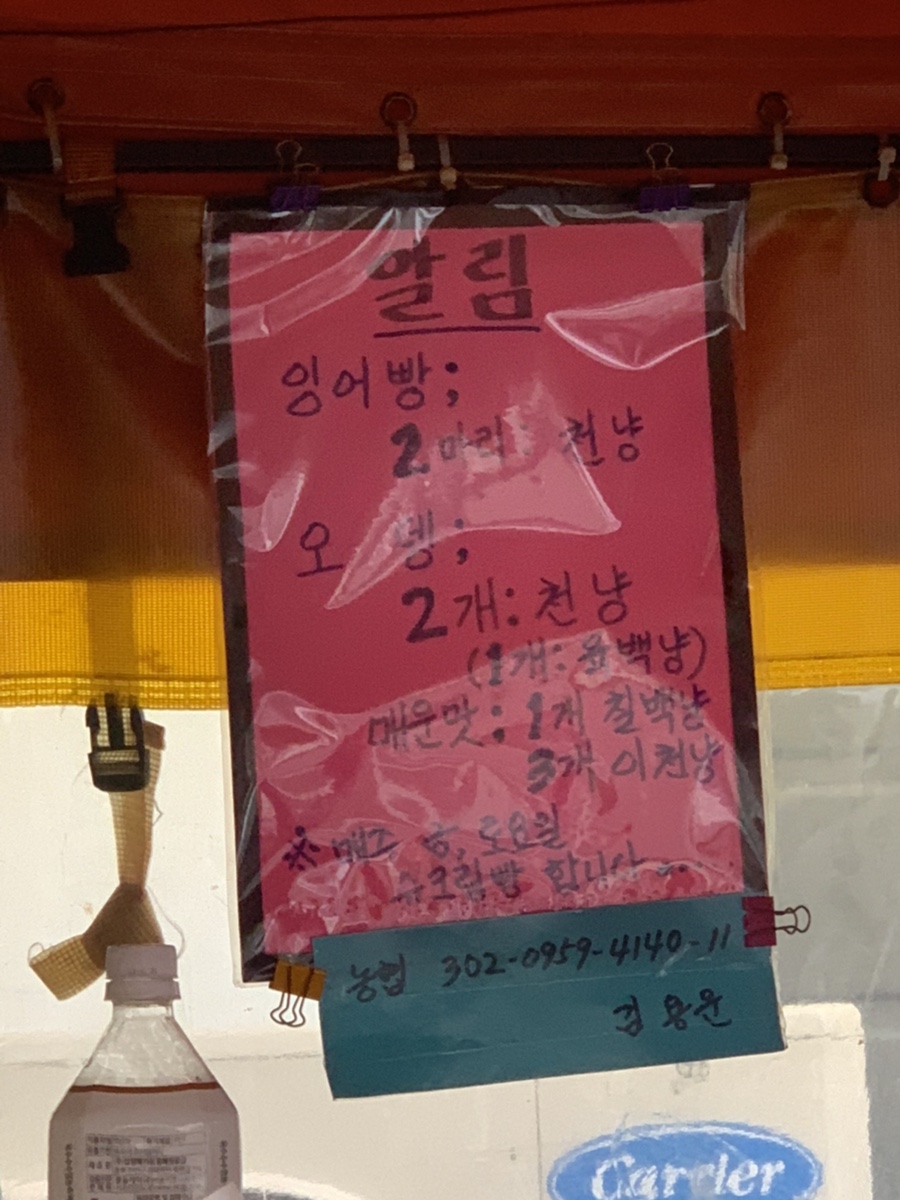 알림
잉어빵;
2마리: 천냥
오 뎅;
2개: 천냥
(1개: 육백냥)
매운맛: 1개 칠백냥
3개 이천냥
※ 매주 금, 토요일
슈크림빵 합니다
농협 302-0959-4140-11
김용운
Carrier